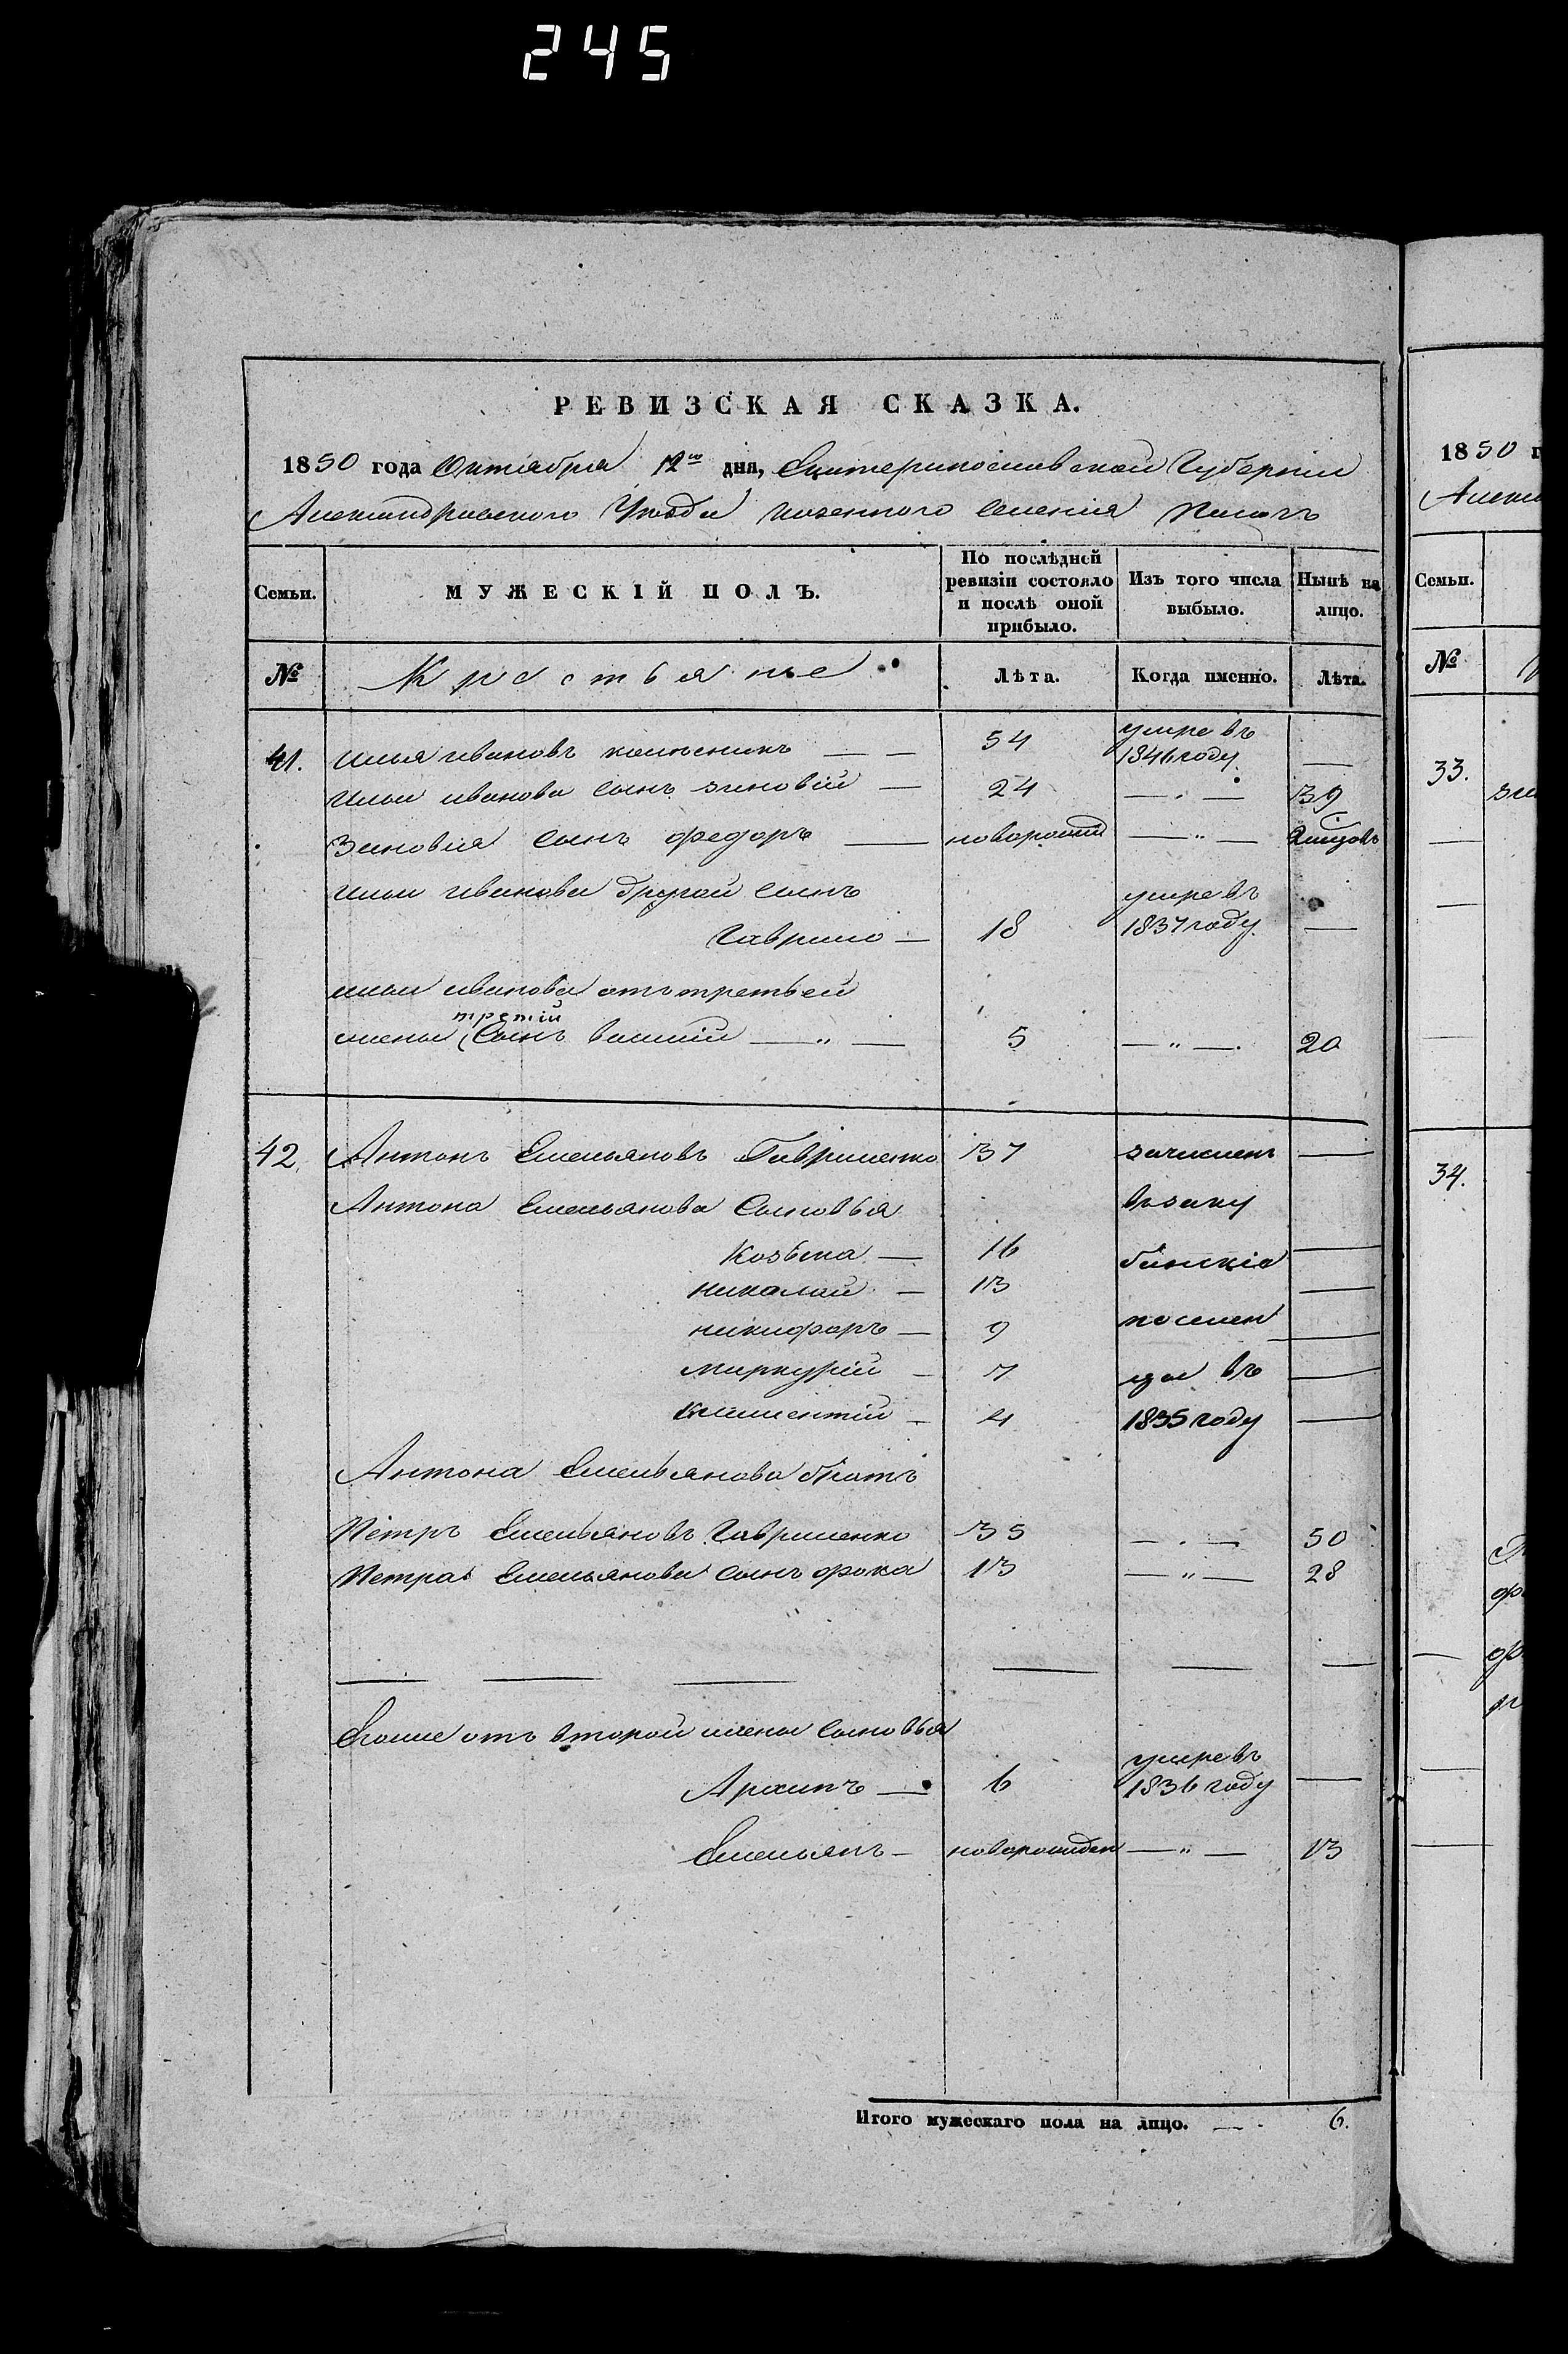 245
РЕВИЗСКАЯ СКАЗКА.
1850 года Октября 12го дня, Екатеринославской Губернии
Александровского Уезда казенного селения
Семьи. МУЖЕСКІЙ ПОЛЪ. По послѣдней ревизіи состояло и послѣ оной прибыло. Изъ того числа выбыло. Нынѣ на лицо.
№ Крестьяне Лѣта. Когда именно. Лѣта.
41. Илья Ивановъ колесникъ — — 54 умре въ 1846 году —
Ильи иванова сынъ зиновій — 24 — . — 39
Зиновия сынъ федоръ — новорожд — " —
Ильи иванова другой сынъ
Гаврило — 18 умре въ 1837 году —
ильи иванова отъ третьей
жены третій сынъ василій — " — 5 — " — 20
42 Антонъ Емельяновъ Гавриленко 37 зачислен —
Антона Емельянова Сыновья взаку
Козьма — 16 банскіе —
николай — 13 —
никифоръ — 9 поселен —
меркурій — 7 цы въ —
климентій — 4 1835 году —
Антона Емельянова братъ
Петръ Емельяновъ Гавриленко 35 — . — 50
Петра Емельянова сынъ фока 13 — " — 28
— — — — — —
Егоже отъ второй жены сыновья
Архипъ — 6 умре въ 1836 году —
Емельянъ — новорожден — " — 13
Итого мужескаго пола на лицо. — 6.
1850 г
Семьи.
№
33.
34.